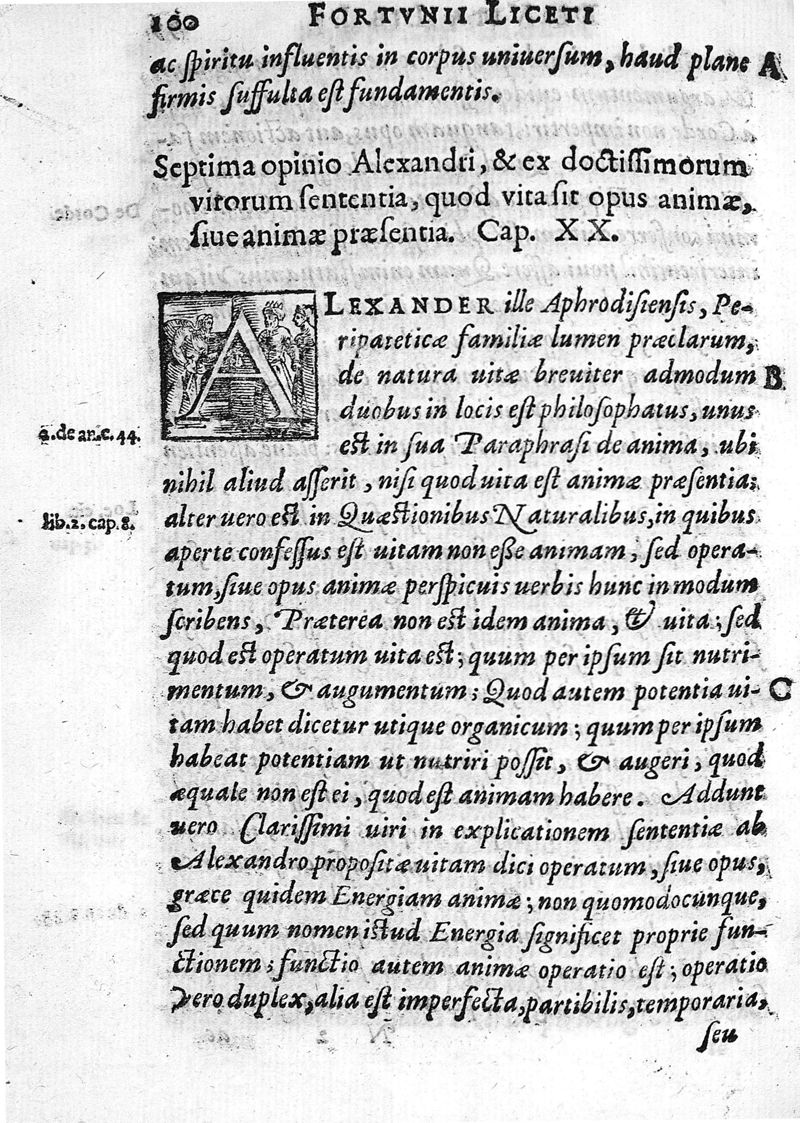 100 FORTVNII LICETI
ac spiritu influentis in corpus uniuersum, haud plane A
firmis suffulta est fundamentis.
Septima opinio Alexandri, & ex doctissimorum
virorum sententia, quod vita sit opus animæ,
siue animæ præsentia. Cap. XX.
ALEXANDER ille Aphrodisiensis, Pe-
ripateticæ familiæ lumen præclarum,
de natura uitæ breuiter admodum B
duobus in locis est philosophatus, unus
4. de an. c. 44.
est in sua Paraphrasi de anima, ubi
nihil aliud asserit, nisi quod uita est animæ præsentia;
lib. 2. cap. 8.
alter uero est in Quæstionibus Naturalibus, in quibus
aperte confessus est uitam non esse animam, sed opera-
tum, siue opus animæ perspicuis uerbis hunc in modum
scribens, Præterea non est idem anima, & uita; sed
quod est operatum uita est; quum per ipsum sit nutri-
mentum, & augumentum; Quod autem potentia ui- C
tam habet dicetur utique organicum; quum per ipsum
habeat potentiam ut nutriri possit, & augeri, quod
æquale non est ei, quod est animam habere. Addunt
uero Clarissimi uiri in explicationem sententiæ ab
Alexandro propositæ uitam dici operatum, siue opus,
græce quidem Energiam animæ; non quomodocunque,
sed quum nomen istud Energia significet proprie fun-
ctionem; functio autem animæ operatio est; operatio
vero duplex, alia est imperfecta, partibilis, temporaria,
seu